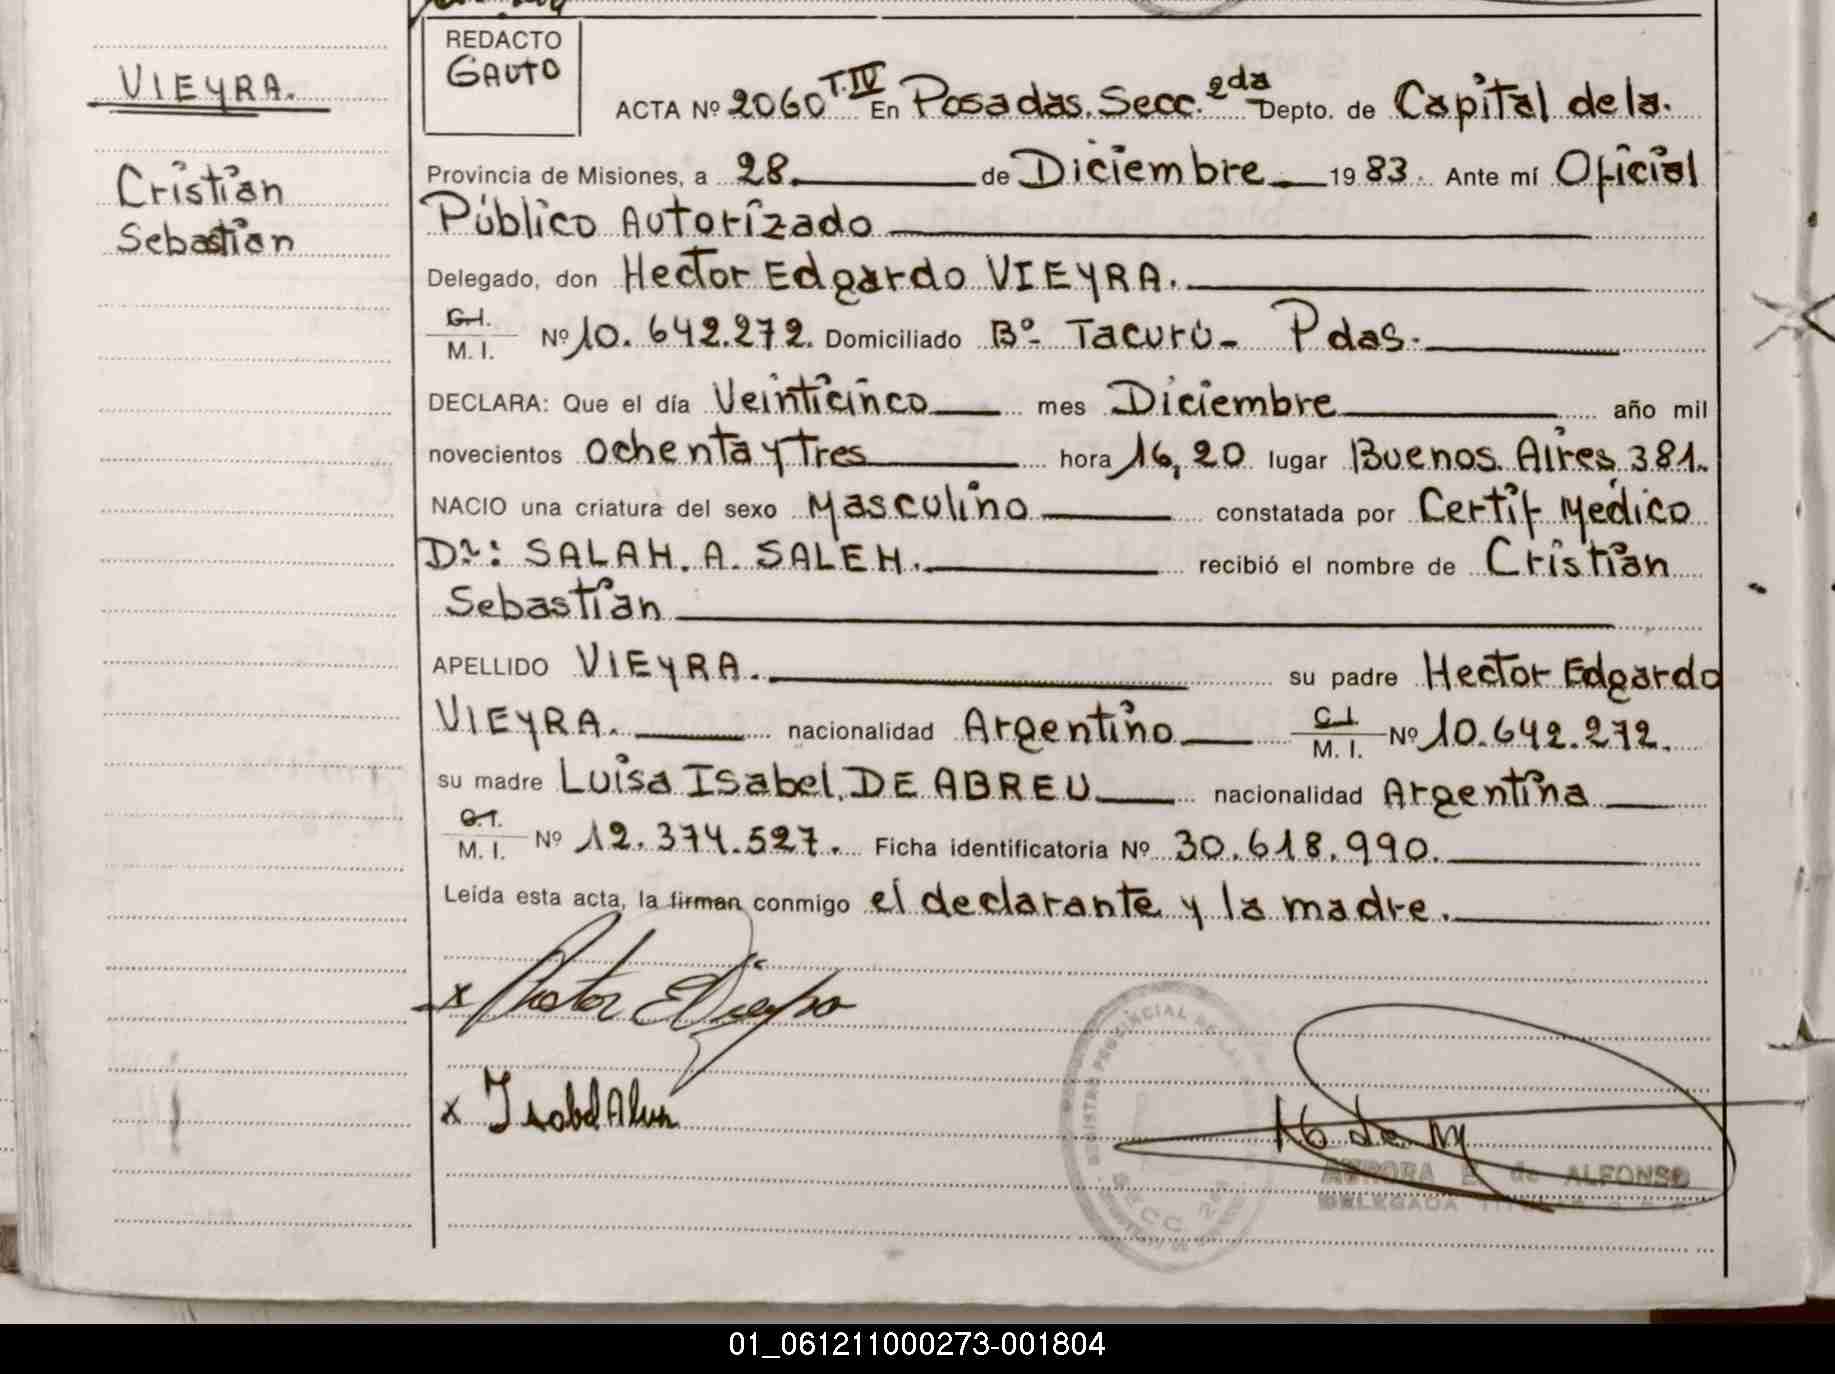 VIEYRA.
Cristian
Sebastian
REDACTO
GAUTO
ACTA Nº 2060 T.IV En Posadas. Secc. 2da Depto. de Capital de la.
Provincia de Misiones, a 28. de Diciembre 1983. Ante mí Oficial
Público Autorizado
Delegado, don Hector Edgardo VIEYRA.
C.I.
M. I. Nº 10.642.272. Domiciliado Bº Tacurú - Pdas.
DECLARA: Que el día Veinticinco mes Diciembre año mil
novecientos ochenta y tres hora 16,20 lugar Buenos Aires 381.
NACIO una criatura del sexo Masculino constatada por Certif Médico
Dr.: SALAH. A. SALEH. recibió el nombre de Cristian
Sebastian
APELLIDO VIEYRA. su padre Hector Edgardo
VIEYRA. nacionalidad Argentino C.I. M. I. Nº 10.642.272.
su madre Luisa Isabel DE ABREU nacionalidad Argentina
C.I.
M. I. Nº 12.374.527. Ficha identificatoria Nº 30.618.990.
Leída esta acta, la firman conmigo el declarante y la madre.
x Hector E Vieyra
x Isabel
REGISTRO PROVINCIAL DE LAS
SECC. 2da
AURORA E. de ALFONSO
DELEGADA TITULAR
01_061211000273-001804